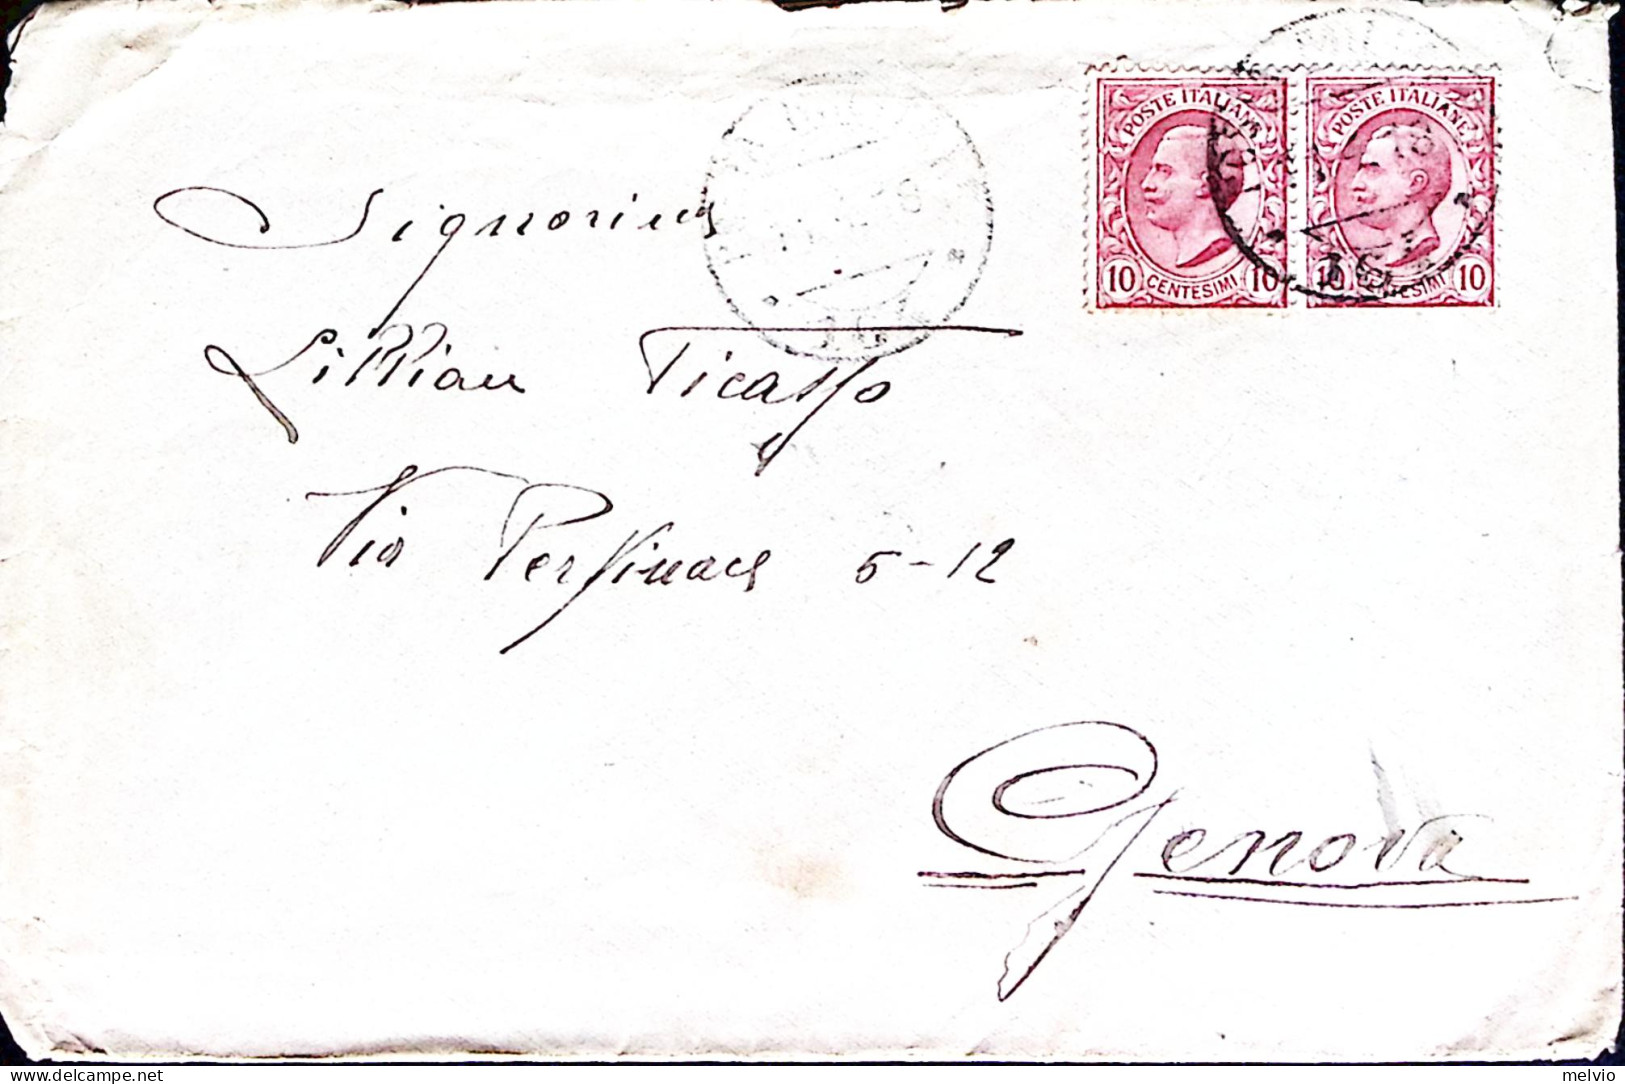 POSTE ITALIANE POSTE ITALIANE
10 CENTESIMI 10 10 CENTESIMI 10
Signorina
Lillian Picasso
Via 5-12
Genova
melvio